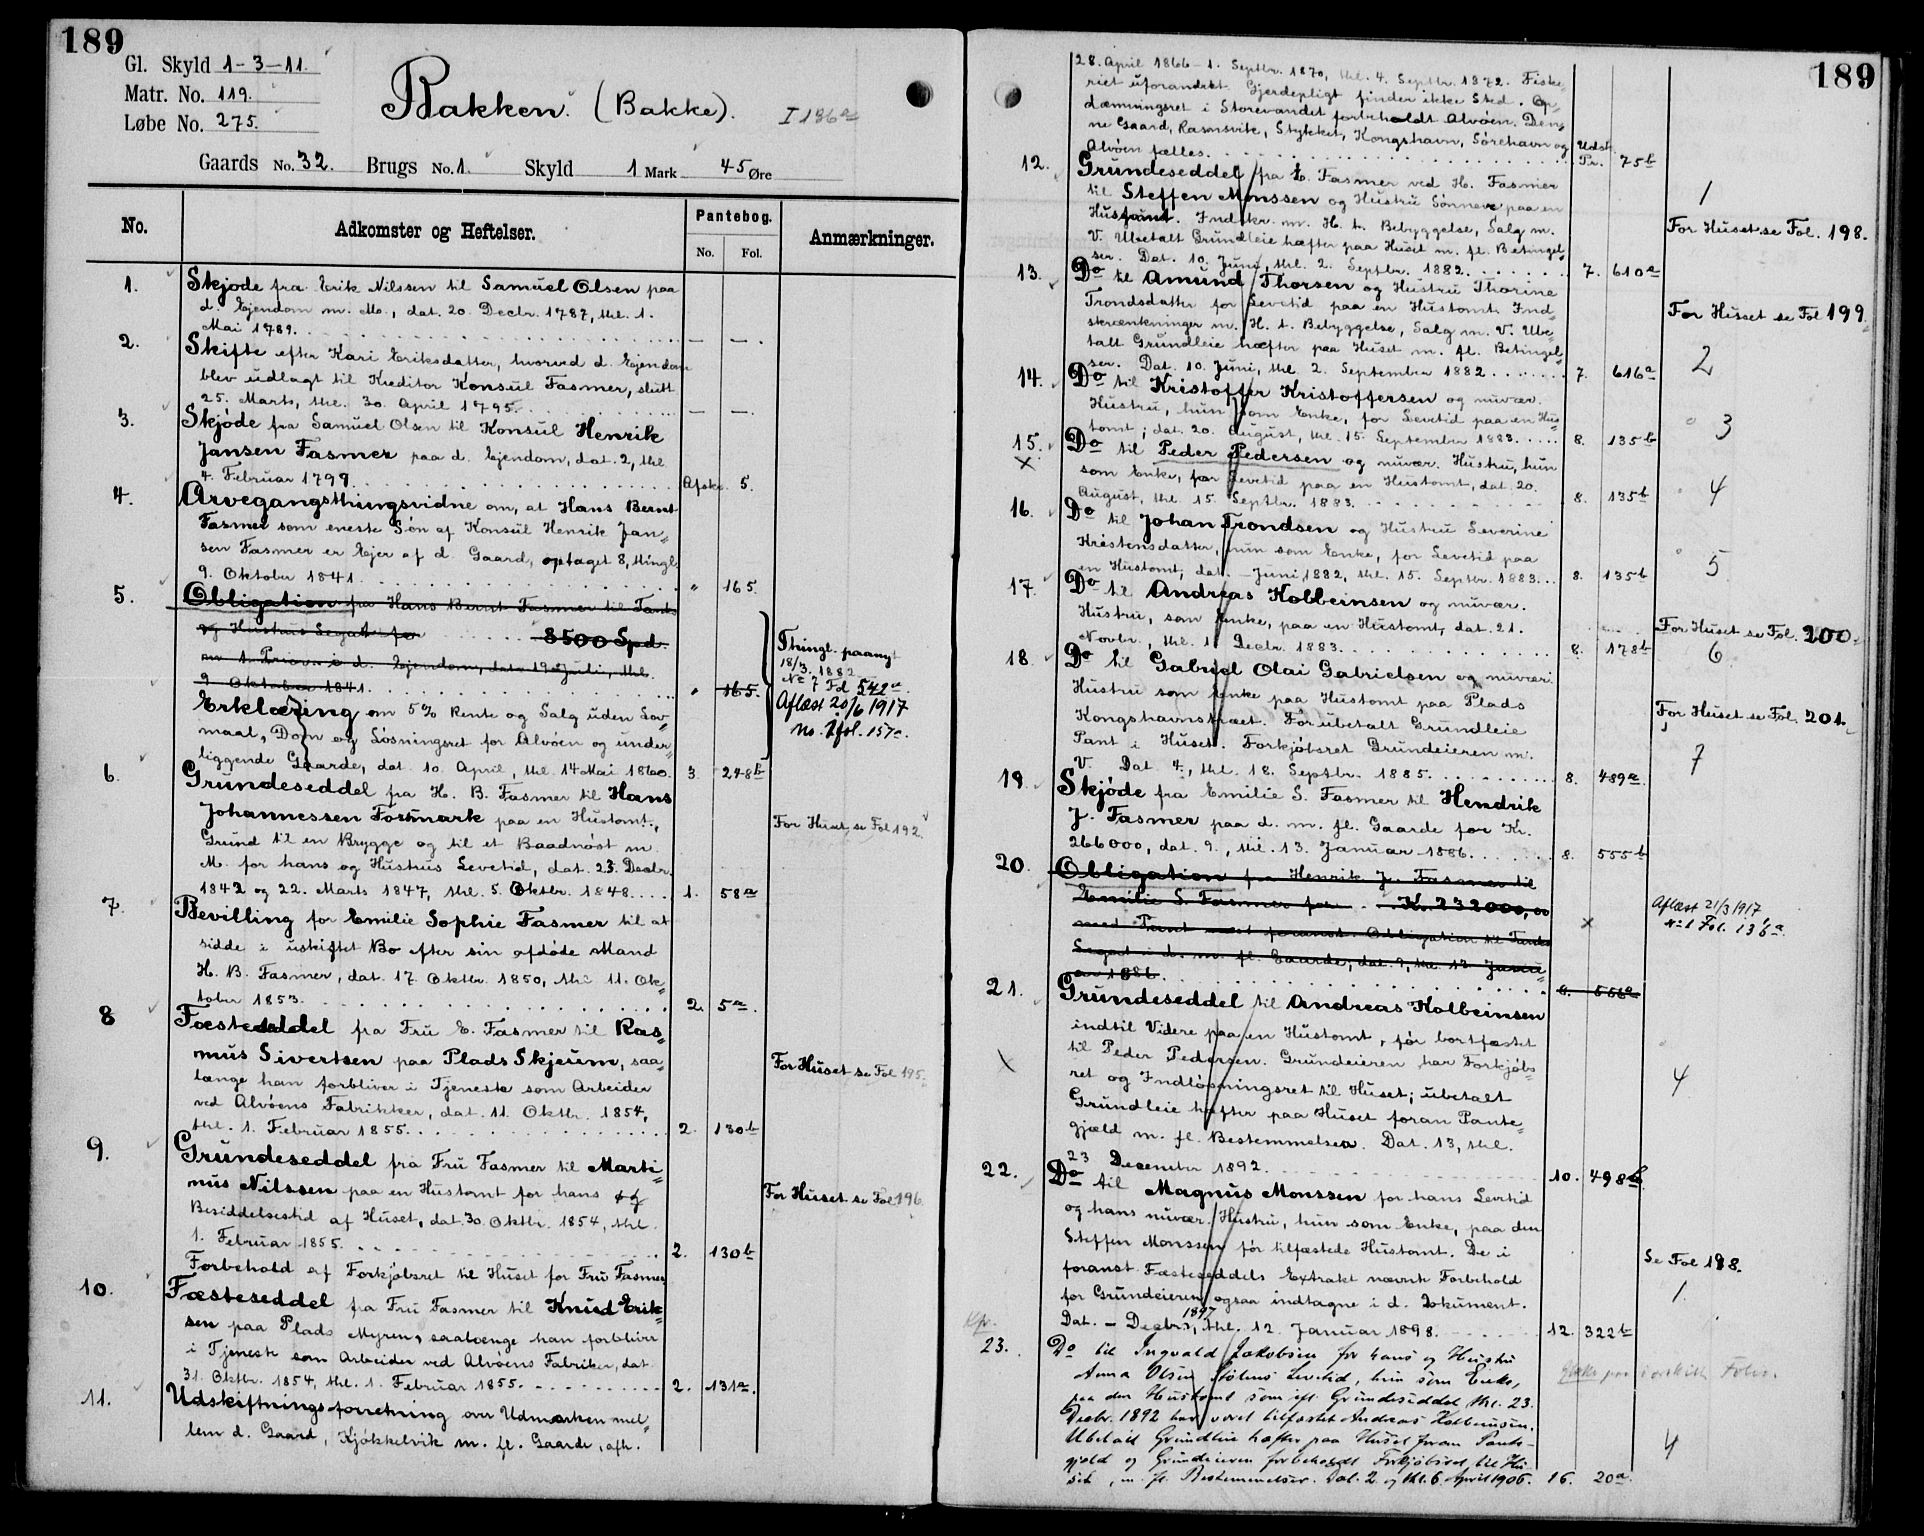 189
Gl. Skyld 1-3-11.
Matr. No. 119.
Løbe No. 275.
Bakken. (Bakke). I 186a
Gaards No. 32. Brugs No. 1. Skyld 1 Mark 45 Øre
No. Adkomster og Heftelser. Pantebog. No. Fol. Anmærkninger.
1. Skjøde fra Erik Nilssen til Samuel Olsen paa
d. Ejendom m. Mo., dat. 20. Decbr. 1787, thl. 1.
Mai 1789. — — .
2. Skifte efter Kari Eriksdatter, hvorved d. Ejendom
blev udlagt til Kreditor Konsul Fasmer, slutt
25. Marts, thl. 30. April 1795. — — .
3. Skjøde fra Samuel Olsen til Konsul Henrik
Jansen Fasmer paa d. Ejendom, dat. 2, thl.
4. Februar 1799. Afske. 5.
4. Arvegangsthingsvidne om, at Hans Bernt
Fasmer som eneste Søn af Konsul Henrik Jan„
sen Fasmer er Ejer af d. Gaard, optaget 8, thingl.
9. Oktober 1841. " 165.
5. Obligation fra Hans Bernt Fasmer til Tanks
og Hustrus Legat for 8500 Spd.
m. 1. Prior. i d. Ejendom, dat. 19. Juli, thl.
9. Oktober 1841. " 165.
Thingl. paany
18/3. 1882
No 7 Fol 542a.
Aflæst 20/6 1917
No. 1 fol. 157a.
Erklæring om 5% Rente og Salg uden Lov„
maal, Dom og Løsningsret for Alvøen og under„
liggende Gaarde, dat. 10. April, thl. 14 Mai 1860. 3. 248b
6. Grundeseddel fra H. B. Fasmer til Hans
Johannessen Formark paa en Hustomt,
Grund til en Brygge og til et Baadnøst m.
M. for hans og Hustrus Levetid, dat. 23. Decbr.
1842 og 22. Marts 1847, thl. 5. Oktbr. 1848. 1. 58a
For Huset se Fol 192.
7. Bevilling for Emilie Sophie Fasmer til at
sidde i uskiftet Bo efter sin afdøde Mand
H. B. Fasmer, dat. 17. Oktbr. 1850, thl. 11. Ok„
tober 1853. 2. 5a.
8 Fæsteseddel fra Fru E. Fasmer til Ras„
mus Sivertsen paa Plads Skjeum, saa„
længe han forbliver i Tjeneste som Arbeider
ved Alvøens Fabrikker, dat. 11. Oktbr. 1854,
thl. 1. Februar 1855. 2. 130b
For Huset se Fol 195.
9. Grundeseddel fra Fru Fasmer til Marti„
nus Nilssen paa en Hustomt for hans og
Besiddelsestid af Huset, dat. 30. Oktbr. 1854, thl.
1. Februar 1855. 2. 130b
Forbehold af Forkjøbsret til Huset for Fru Fasmer.
For Huset se Fol 196.
10. Fæsteseddel fra Fru Fasmer til Knud Erik„
sen paa Plads Myren, saalænge han forbliver
i Tjeneste som Arbeider ved Alvøens Fabriker, dat.
31. Oktbr. 1854, thl. 1. Februar 1855. 2. 131a.
11. Udskiftningsforretning over Udmarken mel„
lem d. Gaard, Kjøkkelvik m. fl. Gaarde, afh.
189
28. April 1866 - 1. Septbr. 1870, thl. 4. Septbr. 1872. Fiske„
riet uforandret. Gjerdepligt finder ikke Sted. Op„
dæmningsret i Storevandet forbeholdt Alvøen. Den„
ne Gaard, Rasmsvik, Stykket, Kongshavn, Sørehavn og
Alvøen fælles. Udst. Pr. 75b
12. Grundeseddel fra E. Fasmer ved H. Fasmer
til Steffen Monssen og Hustru Sønneve paa en
Hustomt. Indskr. m. H. t. Bebyggelse, Salg m.
V. Ubetalt Grundleie hæfter paa Huset m. fl. Betingel„
ser. Dat. 10. Juni, thl. 2. Septbr. 1882. 7. 610a
1
For Huset se Fol. 198.
13. Do til Amund Thorsen og Hustru Thorine
Trondsdatter for Levetid paa en Hustomt. Ind„
skrænkninger m. H. t. Bebyggelse, Salg m. V. Ube„
talt Grundleie hæfter paa Huset m. fl. Betingel„
ser. Dat. 10. Juni, thl. 2. September 1882. 7. 616a
For Huset se Fol 199.
2
14. Do til Kristoffer Kristoffersen og nuvær.
Hustru, hun som Enke, for Levetid paa en Hus„
tomt; dat. 20. August, thl. 15. September 1883. 8. 135b
3
15. Do til Peder Pedersen og nuvær. Hustru, hun
× som Enke, for Levetid paa en Hustomt, dat. 20.
August, thl. 15. Septbr. 1883. 8. 135b
4
16. Do til Johan Trondsen og Hustru Severine
Kristensdatter, hun som Enke, for Levetid paa
en Hustomt, dat. — Juni 1882, thl. 15. Septbr. 1883. 8. 135b
5
17. Do til Andreas Kolbeinsen og nuvær.
Hustru, som Enke, paa en Hustomt, dat. 21.
Novbr., thl. 1. Decbr. 1883. 8. 178b
For Huset se Fol. 200.
6
18. Do til Gabriel Olai Gabrielsen og nuvær.
Hustru som Enke paa Hustomt paa Plads
Kongshavnstræet. For ubetalt Grundleie
Pant i Huset. Forkjøbsret Grundeieren m.
V. Dat. 4., thl. 18. Septbr. 1885. 8. 489a.
For Huset se Fol. 201.
7
19. Skjøde fra Emilie S. Fasmer til Hendrik
J. Fasmer paa d. m. fl. Gaarde for Kr.
266000, dat. 9., thl. 13. Januar 1886. 8. 555b
20. Obligation fra Henrik J. Fasmer til
Emilie S. Fasmer for Kr. 232000,00
med Pant næst foranst. Obligation til Tanks
Legat i d. m. fl. Gaarde, dat. 9, thl. 13. Janu„
ar 1886. 8. 556a
×
Aflæst 21/3 1917
No 1 Fol. 136a.
21. Grundeseddel til Andreas Kolbeinsen
indtil Videre paa en Hustomt, før bortfæstet
til Peder Pedersen. Grundeieren har Forkjøbs„
ret og Indløsningsret til Huset; ubetalt
Grundleie hæfter paa Huset foran Pante„
gjæld m. fl. Bestemmelser. Dat. 13, thl.
23 December 1892. 10. 498b.
×
4
22. Do til Magnus Monssen for hans Levetid
og hans nuvær. Hustru, hun som Enke, paa den
Steffen Monssen før tilfæstede Hustomt. De i
foranst. Fæsteseddels Extrakt nævnte Forbehold
for Grundeieren ogsaa indtagne i d. Dokument.
Dat. — Decbr. 1897, thl. 12. Januar 1898. 12. 322b
Se Fol 198.
1.
23. Do til Ingvald Jakobsen for hans og Hustru
Anna Olsen Levetid, hun som Enke,
paa den Hustomt som eft. Grundeseddel thl. 23.
Decbr. 1892 har været tilfæstet Andreas Kolbeinsen.
Ubetalt Grundleie hæfter paa Huset foran Pante-
gjæld og Grundeieren forbeholdt Forkjøbsret til Hu-
set, m. fl. Bestemmelser. Dat. 2. og thl. 6. April 1906. 16. 20a.
4